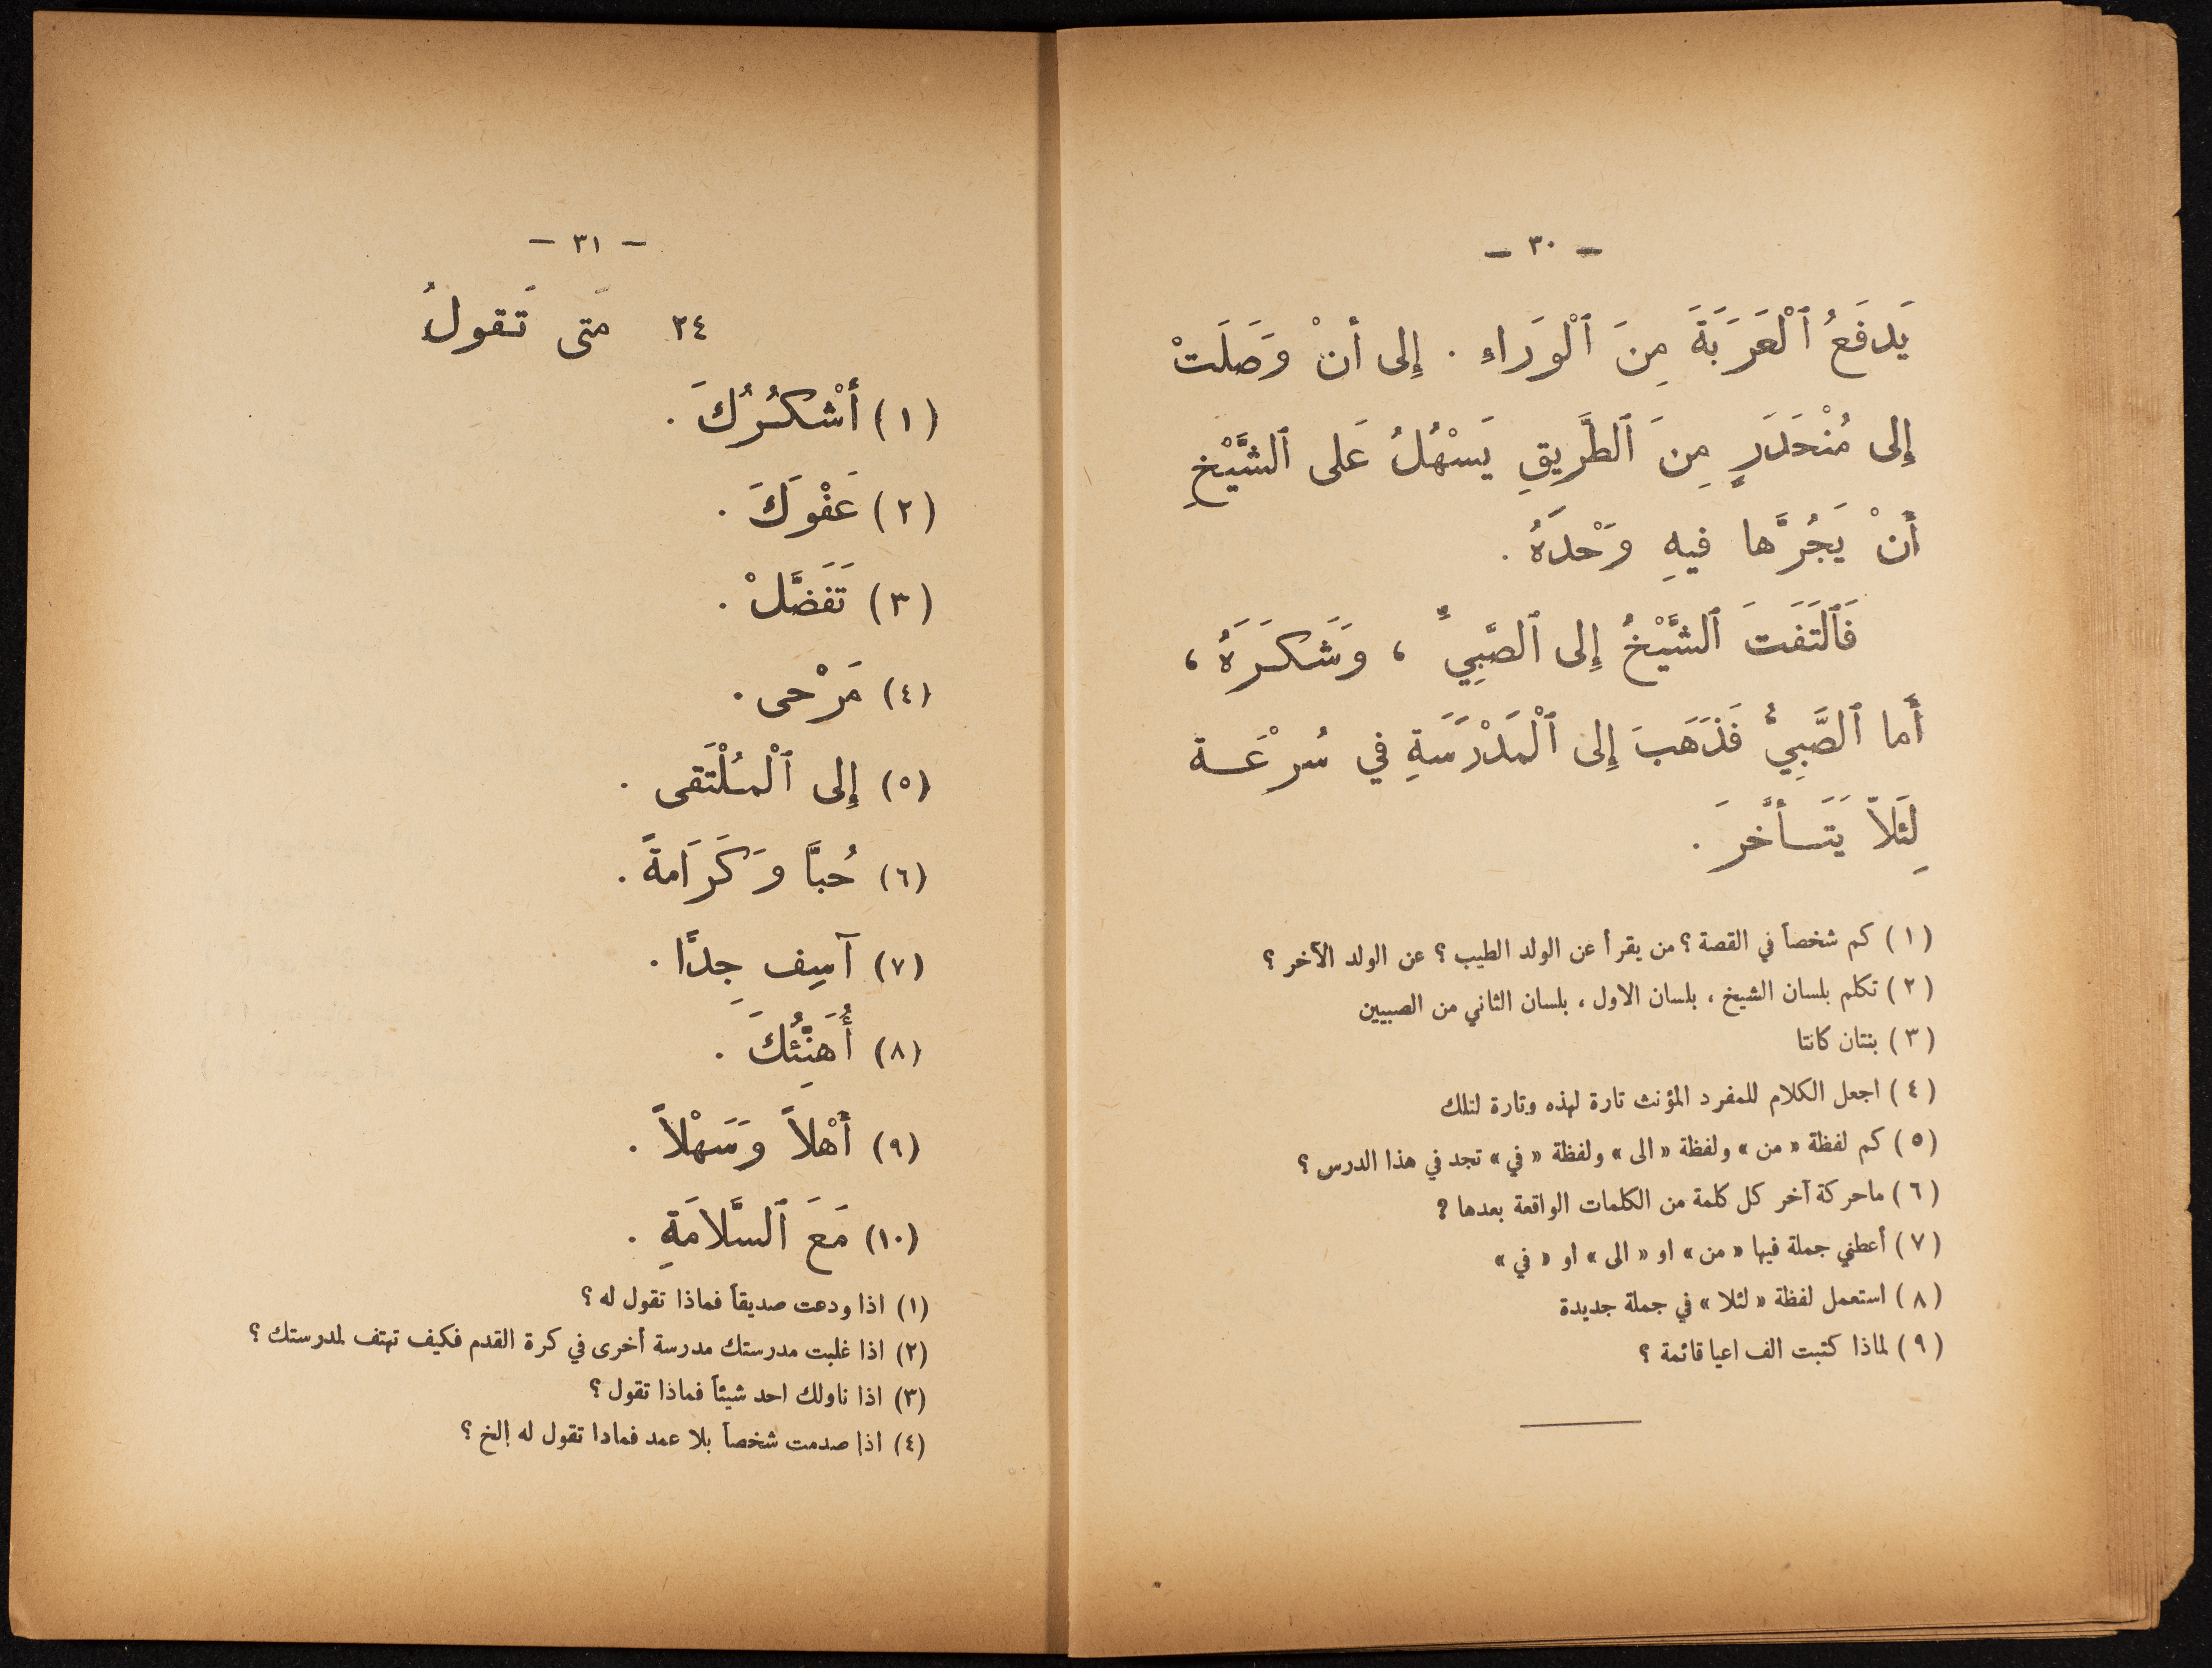 — ٣٠ —
يَدفَعُ ٱلْعَرَبَةَ مِنَ ٱلْوَراءِ . إِلى أَنْ وَصَلَتْ
إِلى مُنْحَدَرٍ مِنَ ٱلطَّرِيقِ يَسْهُلُ عَلى ٱلشَّيْخِ
أَنْ يَجُرَّها فيهِ وَحْدَهُ .
فَٱلتَفَتَ ٱلشَّيْخُ إِلى ٱلصَّبِيِّ ، وَشَكَرَهُ ،
أَما ٱلصَّبِيُّ فَذَهَبَ إِلى ٱلْمَدْرَسَةِ في سُرْعَة
لِئَلاَّ يَتَأَخَّرَ .
(١) كم شخصاً في القصة ؟ من يقرأ عن الولد الطيب ؟ عن الولد الآخر ؟
(٢) تكلم بلسان الشيخ ، بلسان الاول ، بلسان الثاني من الصبيين
(٣) بنتان كانتا
(٤) اجعل الكلام للمفرد المؤنث تارة لهذه وتارة لتلك
(٥) كم لفظة « من » ولفظة « الى » ولفظة « في » تجد في هذا الدرس ؟
(٦) ماحركة آخر كل كلمة من الكلمات الواقعة بعدها ?
(٧) أعطني جملة فيها « من » او « الى » او « في »
(٨) استعمل لفظة « لئلا » في جملة جديدة
(٩) لماذا كتبت الف اعيا قائمة ؟
— ٣١ —
٢٤ مَتى تَقولُ
(١) أَشْكُرُكَ .
(٢) عَفْوَكَ .
(٣) تَفَضَّلْ .
(٤) مَرْحى .
(٥) إِلى ٱلْمُلْتَقى .
(٦) حُبَّاً وَكَرَامَةً .
(٧) آسِف جِدًّا .
(٨) أُهَنِّئُكَ .
(٩) أَهْلاً وَسَهْلاً .
(١٠) مَعَ ٱلسَّلاَمَةِ .
(١) اذا ودعت صديقاً فماذا تقول له ؟
(٢) اذا غلبت مدرستك مدرسة أخرى في كرة القدم فكيف تهتف لمدرستك ؟
(٣) اذا ناولك احد شيئاً فماذا تقول ؟
(٤) اذا صدمت شخصاً بلا عمد فمادا تقول له إلخ ؟